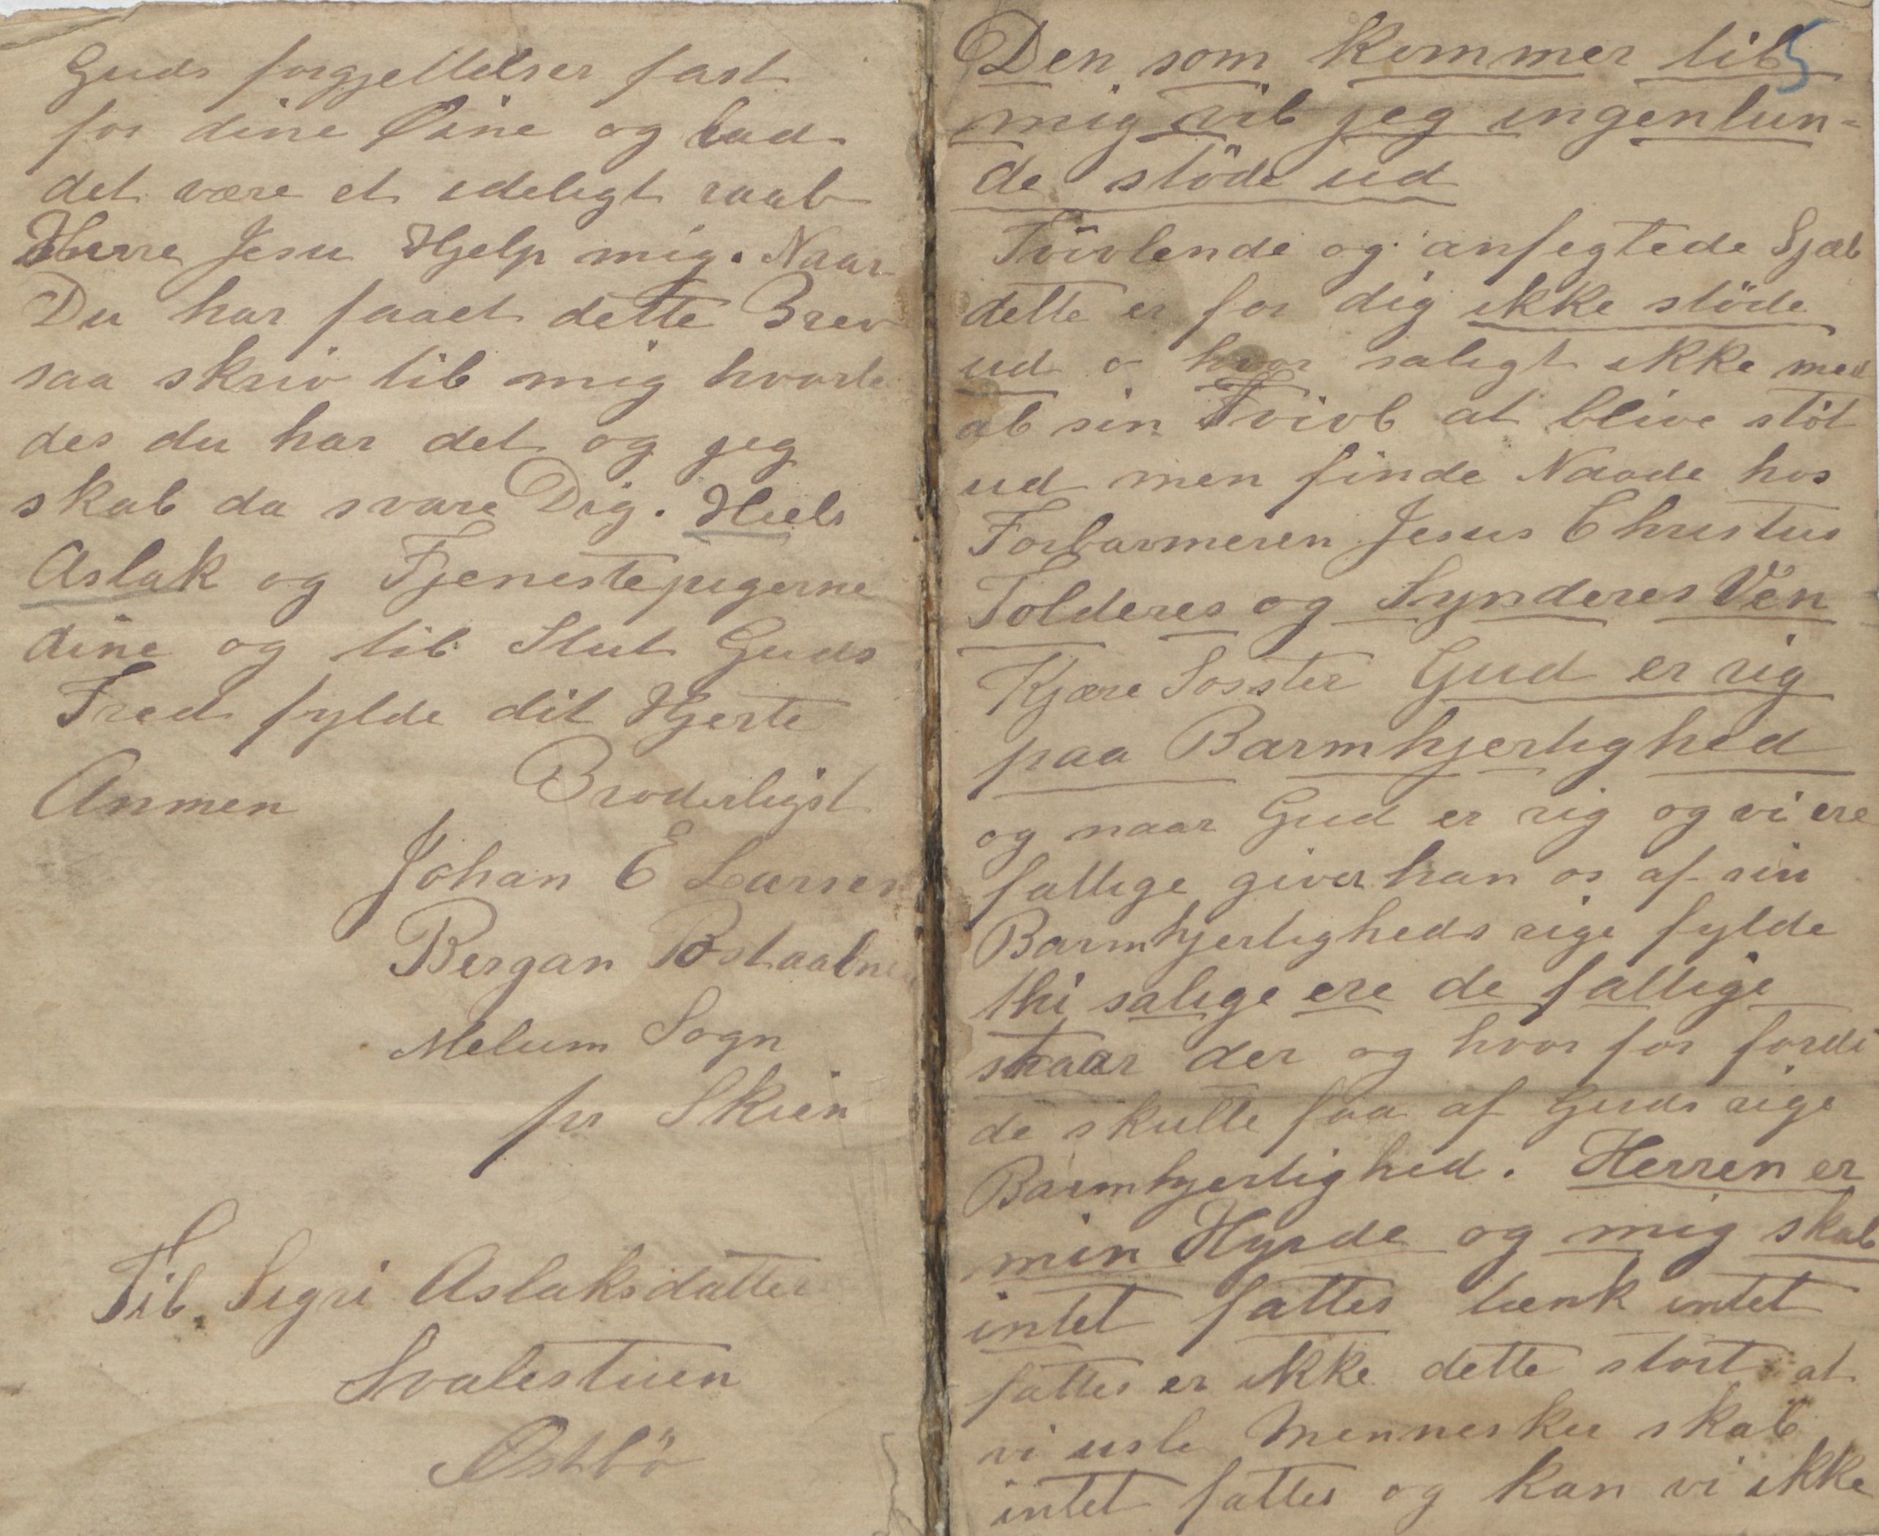 Guds forgjettelser fast
for dine Øine og lad
det være et ideligt raab
Herre Jesu Hjelp mig. Naar
Du har faaet dette Brev
saa skriv til mig hvorle
des du har det og jeg
skal da svare Dig. Hiels
Aslak og Tjenestepigerne
dine og til Slut Guds
Fred fylde dit Hjerte
Anmen Broderligst
Johan E Larsen
Bergan Postaabne
Melum Sogn
pr Skien
Til Sigri Aslaksdatter
Svalestuen
Østbö
5
Den som kommer til
mig vil jeg ingenlun=
de støde ud
Tvivlende og anfegtede Sjæl
dette er for dig ikke støde
ud o hvor saligt ikke med
al sin Tvivl at blive støt
ud men finde Naade hos
Forbarmeren Jesus Christus
Tolderes og Synderes Ven
Kjære Søster Gud er rig
paa Barmhjertighed
og naar Gud er rig og vi ere
fattige giver han os af sin
Barmhjertigheds rige fylde
thi salige ere de fattige
staar der og hvor for fordi
de skulle faa af Guds rige
Barmhjertighed. Herren er
min Hyrde og mig skal
intet fattes tænk intet
fattes er ikke dette stort at
vi usle Mennesker skal
intet fattes og kan vi ikke